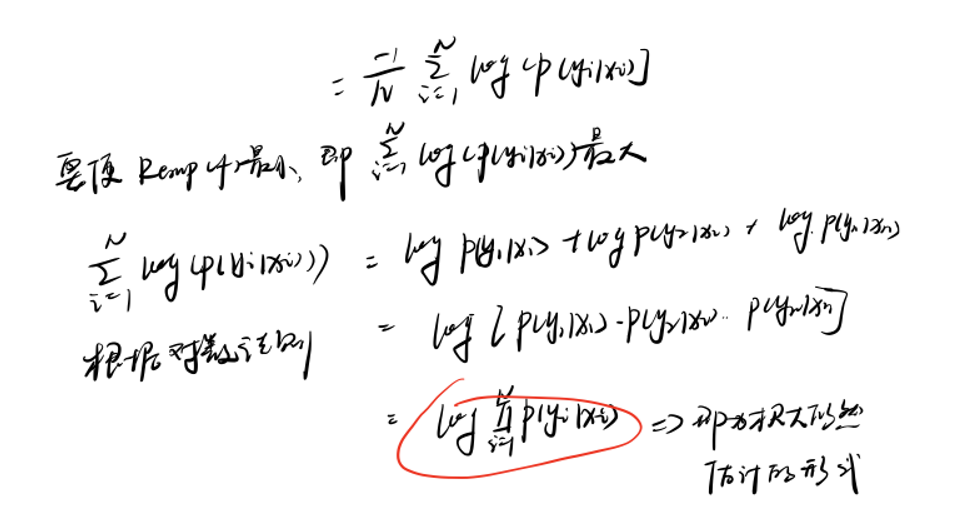 = -1/N ∑_{i=1}^{N} log [p(yi|xi)]
要使 Remp(f)最小, 即 ∑_{i=1}^{N} log(p(yi|xi))最大
∑_{i=1}^{N} log(p(yi|xi)) = log p(y1|x1) + log p(y2|x2) + log p(yn|xn)
= log [p(y1|x1)·p(y2|x2)·· p(yn|xn)]
根据对数法则
= log ∏_{i=1}^{N} p(yi|xi) => 即为极大似然
估计的形式